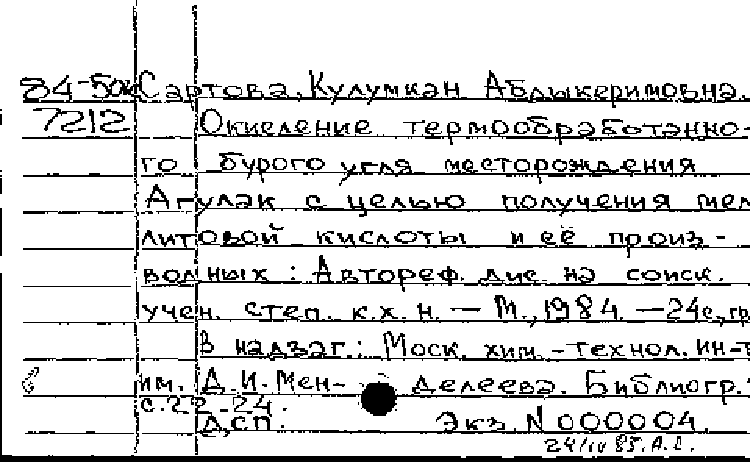 84-50к Сартова, Кулумкан Абдыкеримовна.
7212 Окисление термообработанно-
го бурого угля месторождения
Агулак с целью получения мел
литовой кислоты и её произ-
водных: Автореф. дис. на соиск.
учен. степ. к.х.н. — М., 1984. — 24с, гр
В надзаг.: Моск. хим.-технол. ин-т
им. Д.И. Мен- делеева. Библиогр.:
с.22-24.
ДСП. Экз. N 000004.